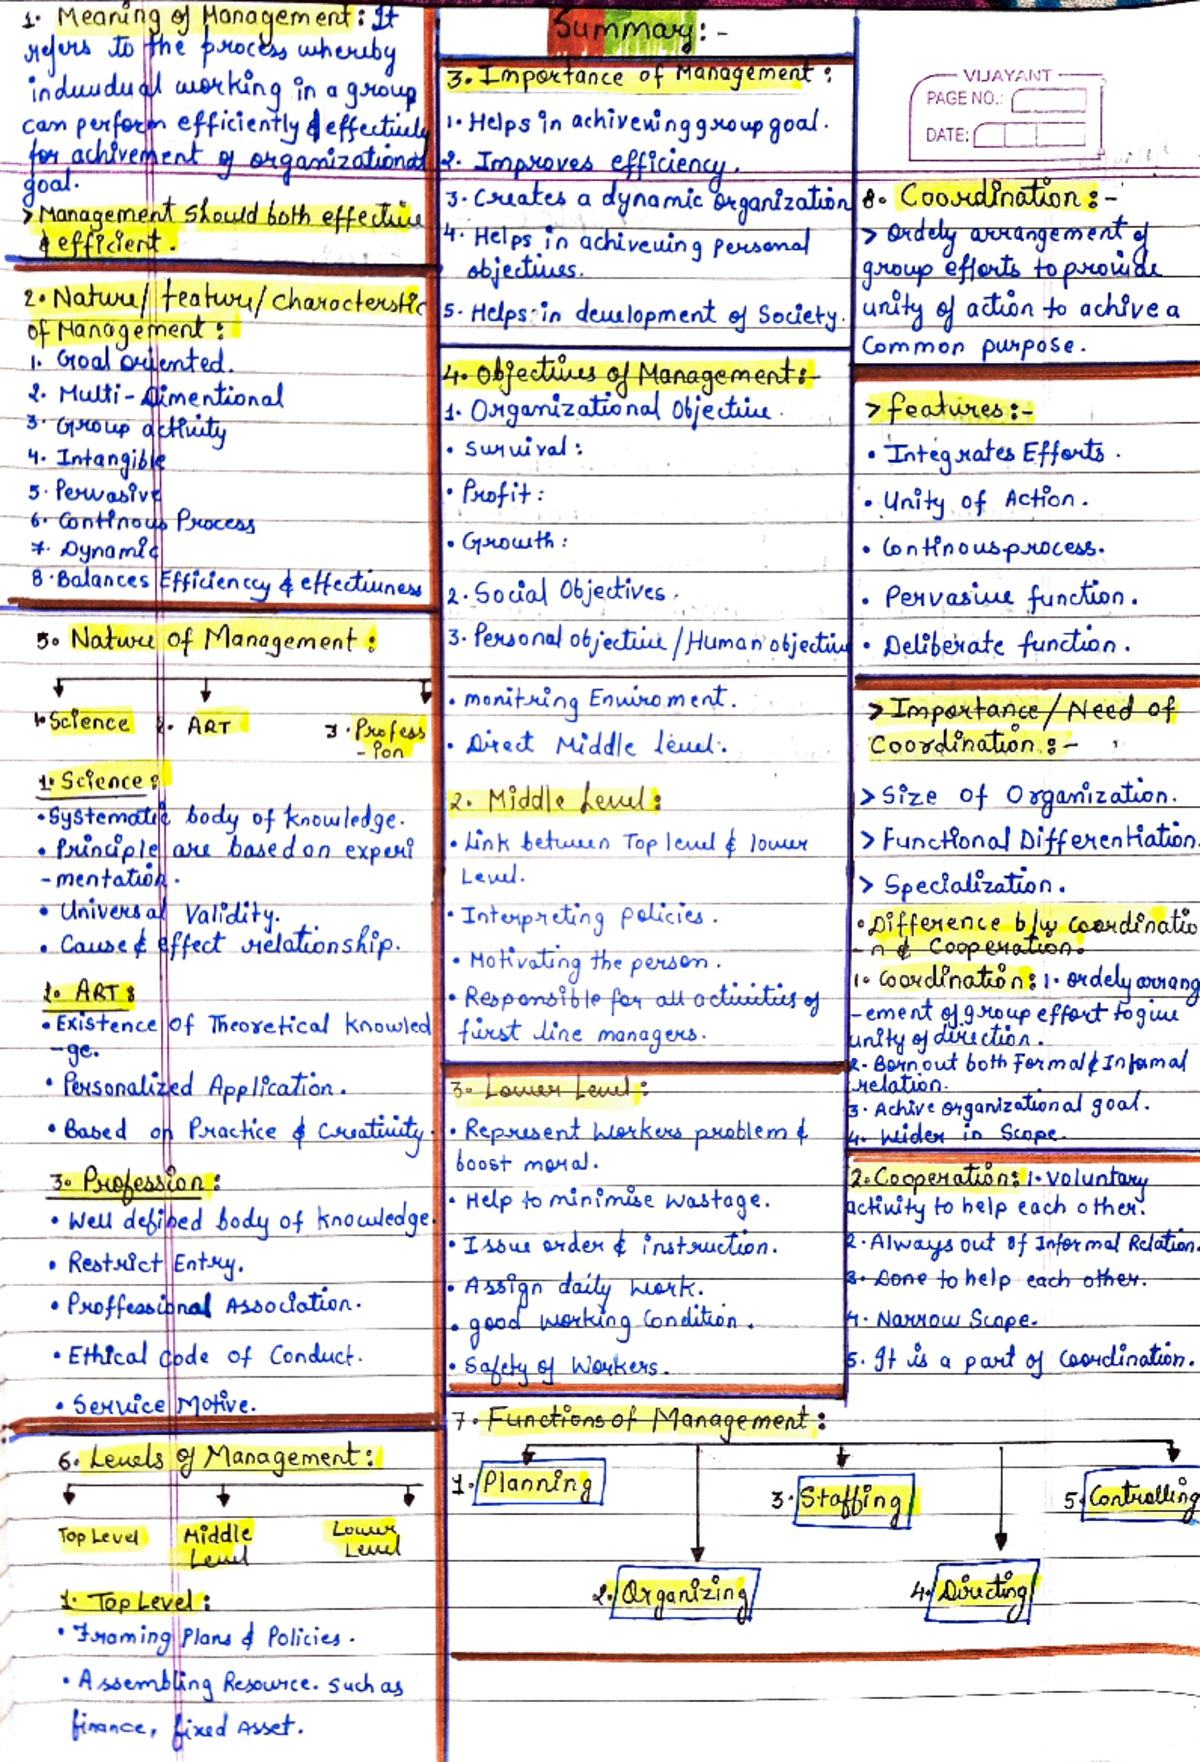 1. Meaning of Management: It
refers to the process whereby
induvdual working in a group
can perform efficiently & effectively
for achivement of organizational
goal.
> Management should both effective
& efficient.
2. Nature/feature/characterstic
of Management:
1. Goal oriented.
2. Multi-Dimentional
3. Group activity
4. Intangible
5. Pervasive
6. Continous Process
7. Dynamic
8. Balances Efficiency & effectiveness
5. Nature of Management:
1. Science 2. ART 3. Profess
-ion
1. Science:
• Systematic body of knowledge.
• Principle are based on experi
-mentation.
• Universal Validity.
• Cause & effect relationship.
2. ART:
• Existence of Theoretical knowled
-ge.
• Personalized Application.
• Based on Practice & Creativity.
3. Profession:
• Well defined body of knowledge.
• Restrict Entry.
• Proffessional Association.
• Ethical code of Conduct.
• Service Motive.
6. Levels of Management:
Top Level Middle Lower
Level Level
1. Top Level:
• Framing Plans & Policies.
• Assembling Resource. such as
finance, fixed Asset.
Summary:-
3. Importance of Management:
1. Helps in achivening group goal.
2. Improves efficiency.
3. Creates a dynamic organization
4. Helps in achiveving personal
objectives.
5. Helps in development of Society.
4. Objectives of Management:-
1. Organizational Objective.
• Survival:
• Profit:
• Growth:
2. Social Objectives.
3. Personal objective/Human objective
• monitring Enviroment.
• Direct Middle level.
2. Middle Level:
• Link between Top level & lower
Level.
• Interpreting policies.
• Motivating the person.
• Responsible for all activities of
first line managers.
3. Lower Level:
• Represent Workers problem &
boost moral.
• Help to minimise wastage.
• Issue order & instruction.
• Assign daily work.
• good working Condition.
• Safety of Workers.
7. Functions of Management:
1. Planning
3. Staffing
5. Controlling
2. Organizing
4. Directing
VIJAYANT
PAGE NO.:
DATE:
8. Coordination:-
> Ordely arrangement of
group efforts to provide
unity of action to achive a
Common purpose.
> features:-
• Integrates Efforts.
• Unity of Action.
• Continous process.
• Pervasive function.
• Deliberate function.
> Importance/Need of
Coordination:-
> Size of Organization.
> Functional Differentiation.
> Specialization.
• Difference b/w coordinatio
-n & Cooperation.
1. Coordination: 1. ordely arrang
-ement of group effort to give
unity of direction.
2. Born out both Formal & Informal
relation.
3. Achive organizational goal.
4. Wider in Scope.
2. Cooperation: 1. Voluntary
activity to help each other.
2. Always out of Informal Relation.
3. Done to help each other.
4. Narrow Scope.
5. It is a part of Coordination.